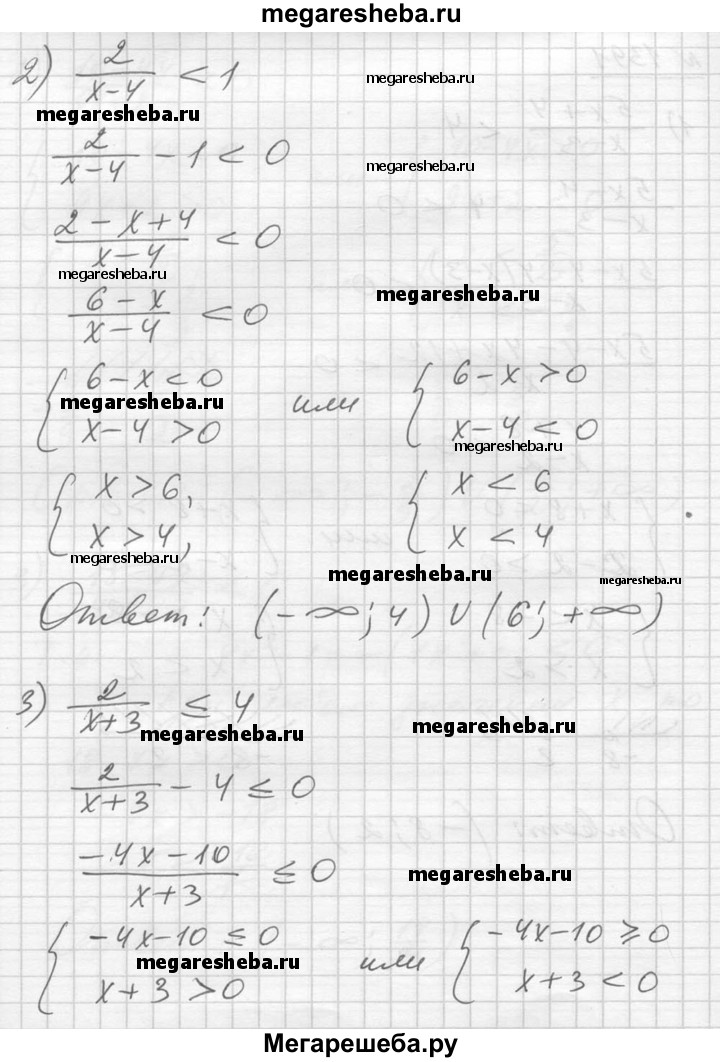 megaresheba.ru
2) 2/(x-4) < 1
megaresheba.ru
megaresheba.ru
2/(x-4) - 1 < 0
megaresheba.ru
(2-x+4)/(x-4) < 0
megaresheba.ru
(6-x)/(x-4) < 0
megaresheba.ru
{ 6-x < 0 или { 6-x > 0
megaresheba.ru
x-4 > 0 x-4 < 0
megaresheba.ru
{ x > 6, { x < 6
x > 4, x < 4
megaresheba.ru
megaresheba.ru
megaresheba.ru
Ответ: (-∞; 4) ∪ (6; +∞)
3) 2/(x+3) ≤ 4
megaresheba.ru
megaresheba.ru
2/(x+3) - 4 ≤ 0
(-4x-10)/(x+3) ≤ 0
megaresheba.ru
{ -4x-10 ≤ 0 или { -4x-10 ≥ 0
megaresheba.ru
x+3 > 0 x+3 < 0
Мегарешеба.ру